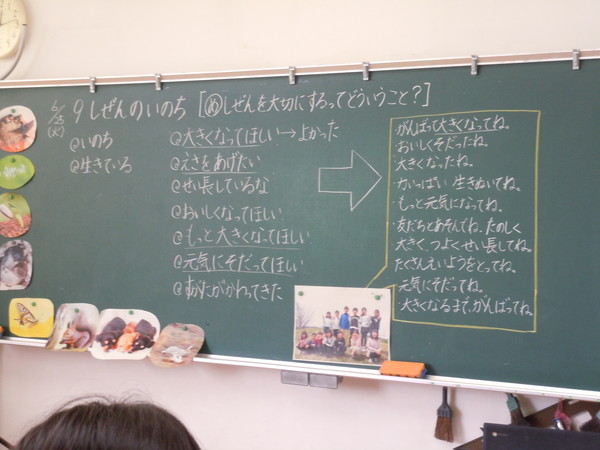 6/23(火)
9 しぜんのいのち [めしぜんを大切にするってどういうこと?]
@いのち
@生きている
@大きくなってほしい→よかった
@えさをあげたい
@せい長しているな
@おいしくなってほしい
@もっと大きくなってほしい
@元気にそだってほしい
がかわってきた
がんばって大きくなってね。
おいしくそだったね。
大きくなったね。
いっぱい 生きぬいてね。
もっと元気になってね。
友だちとあそんでね。たのしく
大きく つよく せい長してね。
たくさんえいようをとってね。
元気にそだってね。
大きくなるまで、がんばってね。